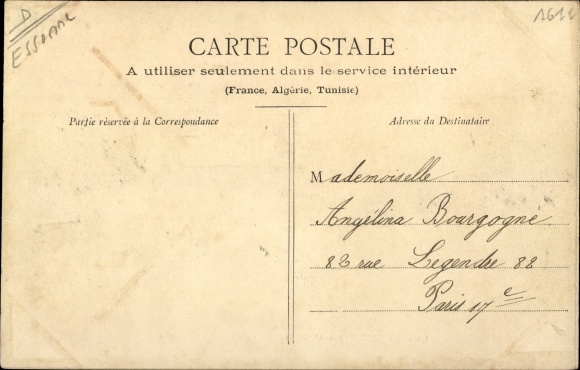 D
ESSONNE
CARTE POSTALE
A utiliser seulement dans le service intérieur
(France, Algérie, Tunisie)
Partie réservée à la Correspondance
Adresse du Destinataire
Mademoiselle
Angélina Bourgogne
88 rue Legendre 88
Paris 17e